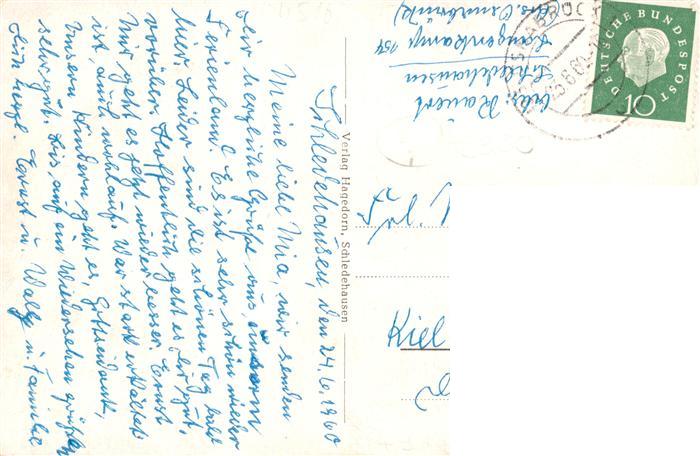 Schledehausen, den 24.6.1960
Meine liebe Mia, wir senden
dir herzliche Grüße aus unserm
Ferienland. Es ist sehr schön wieder
hier. Leider sind die schönen Tag bald
vorüber. Hoffentlich geht es dir gut.
Mir geht es jetzt wieder besser. Ernst
ist auch wohlauf. War stark erkältet.
Unsern Kindern geht es, Gottseidank,
sehr gut. Bis auf ein Wiedersehen grüßen
dich herzl. Ernst u. Wally u. Familie
Verlag Hagedorn, Schledehausen
bei Rauert
Schledehausen
Langenkamp 154
(Krs. Osnabrück)
DEUTSCHE BUNDESPOST
10
OSNABRÜCK
Kiel